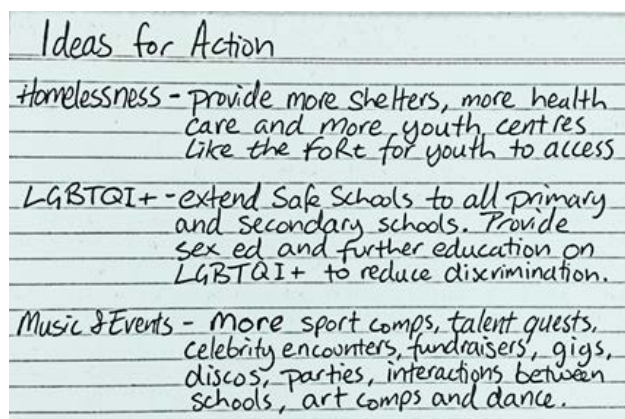 Ideas for Action
Homelessness - provide more shelters, more health
care and more youth centres
like the foRt for youth to access
LGBTQI+ - extend Safe Schools to all primary
and secondary schools. Provide
sex ed and further education on
LGBTQI+ to reduce discrimination.
Music & Events - More sport comps, talent quests,
celebrity encounters, fundraisers, gigs,
discos, parties, interactions between
schools, art comps and dance.